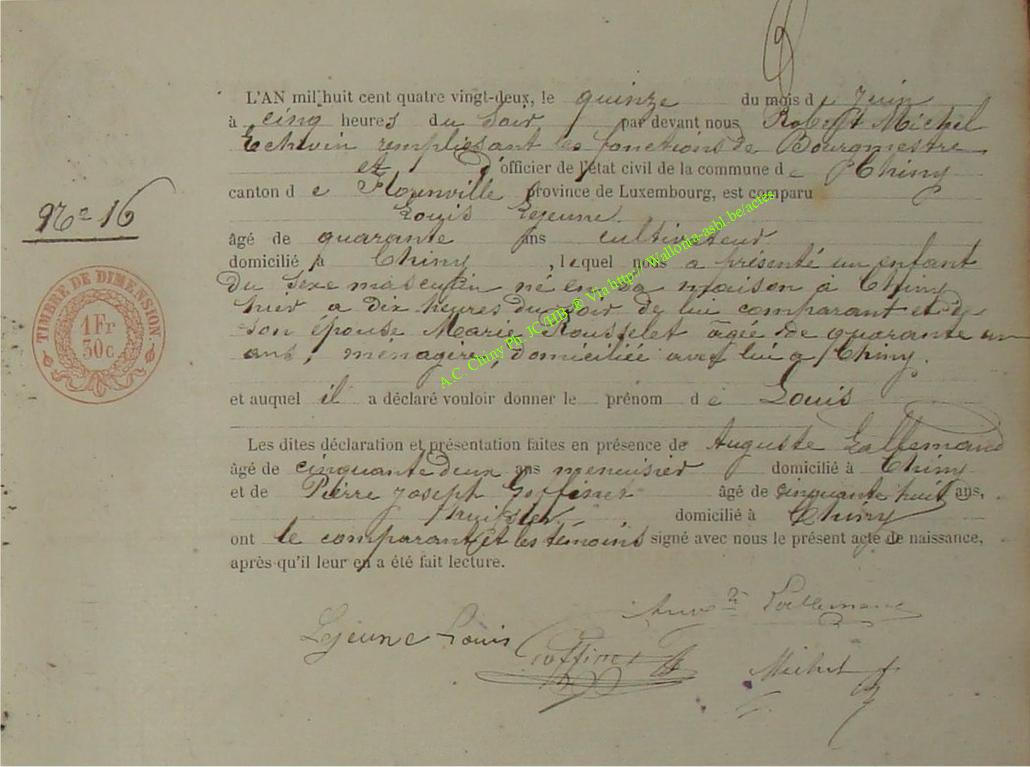 L'AN mil huit cent quatre vingt-deux, le quinze du mois de Juin
à cinq heures du soir par devant nous Robert Michel
Echevin remplissant les fonctions de Bourgmestre
et d'officier de l'état civil de la commune de Chiny
canton de Florenville province de Luxembourg, est comparu
Louis Lejeune
N° 16
âgé de quarante ans cultivateur
domicilié à Chiny, lequel nous a présenté un enfant
du sexe masculin né en sa maison à Chiny
hier a dix heures du soir de lui comparant et de
son épouse Marie Rousselet âgée de quarante un
ans, ménagère, domiciliée avec lui a Chiny.
TIMBRE DE DIMENSION
1 Fr
30 c
et auquel il a déclaré vouloir donner le prénom de Louis
Les dites déclaration et présentation faites en présence de Auguste Lallemand
âgé de cinquante deux ans menuisier domicilié à Chiny
et de Pierre Joseph Goffinet âgé de cinquante huit ans,
domicilié à Chiny
ont le comparant et les témoins signé avec nous le présent acte de naissance,
après qu'il leur en a été fait lecture.
Lejeune Louis
Goffinet
Michel
A.C. Chiny Ph. JC. HB. ® Via http://Wallonia-asbl.be/actes